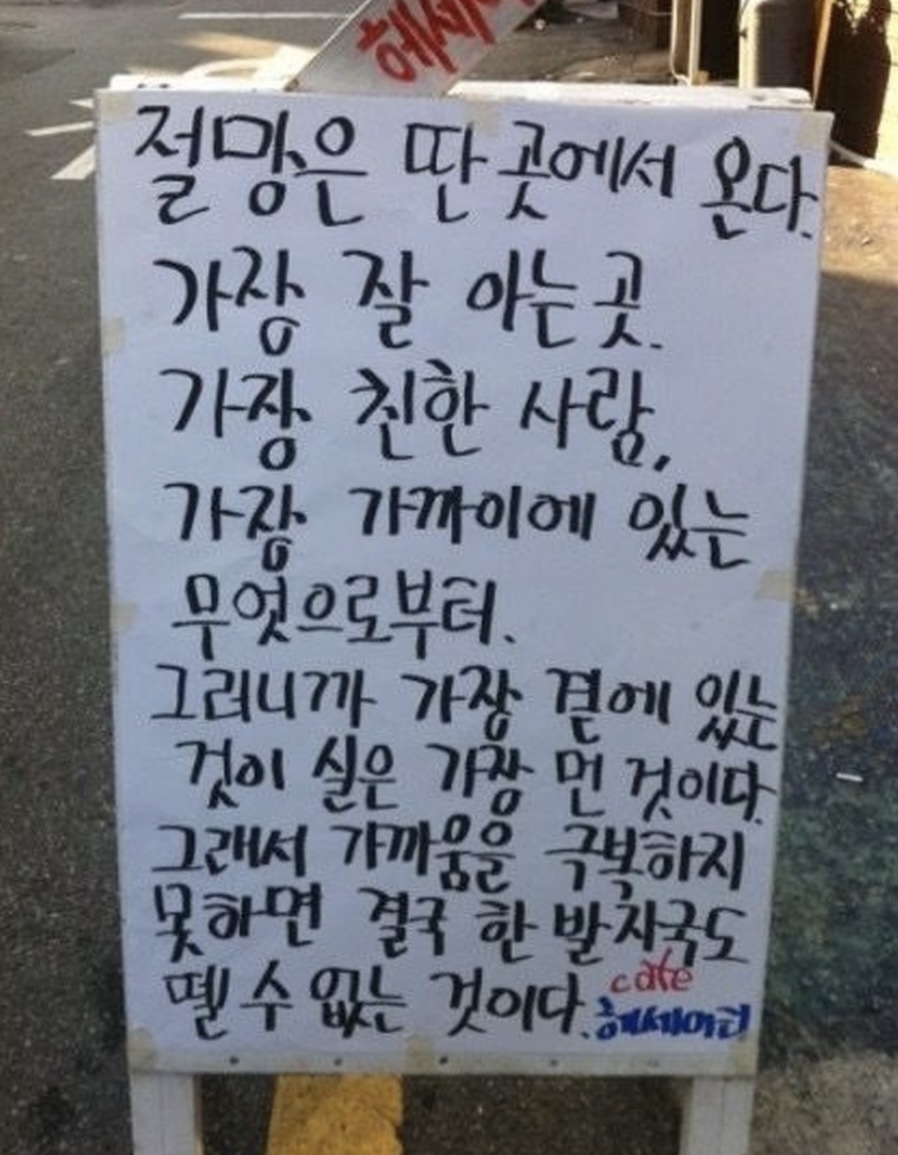 헤세이
절망은 딴 곳에서 온다.
가장 잘 아는 곳.
가장 친한 사람,
가장 가까이에 있는
무엇으로부터.
그러니까 가장 곁에 있는
것이 실은 가장 먼 것이다.
그래서 가까움을 극복하지
못하면 결국 한 발자국도
뗄 수 없는 것이다.
cafe
헤세이티